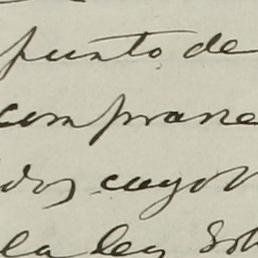 punto de
comprane
dos cuyos
la ley Sob